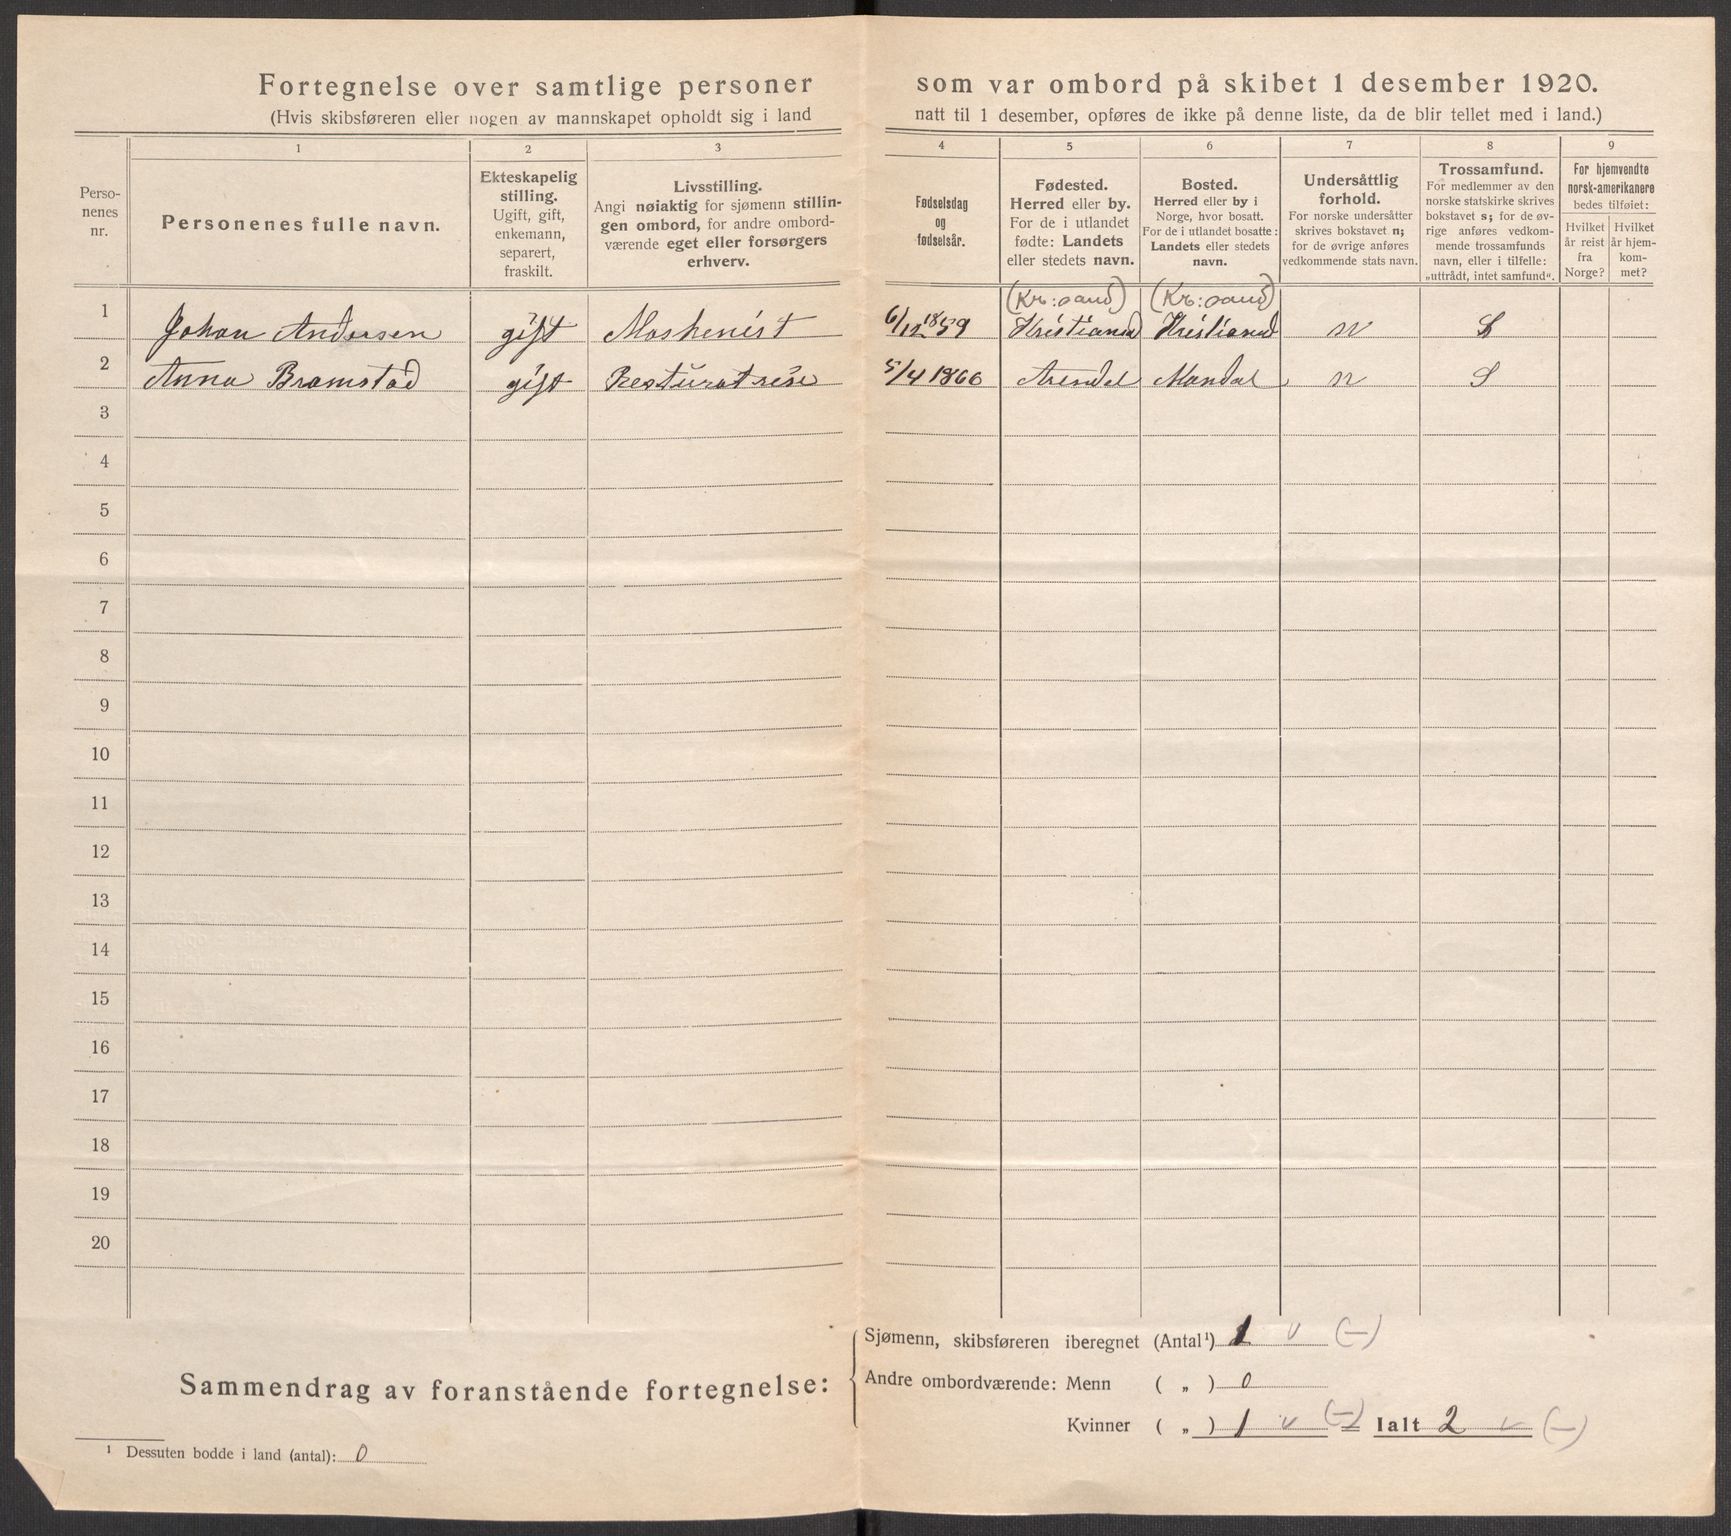 Fortegnelse over samtlige personer som var ombord på skibet 1 desember 1920.
(Hvis skibsføreren eller nogen av mannskapet opholdt sig i land natt til 1 desember, opføres de ikke på denne liste, da de blir tellet med i land.)
Perso-
nenes
nr.
1
Personenes fulle navn.
2
Ekteskapelig
stilling.
Ugift, gift,
enkemann,
separert,
fraskilt.
3
Livsstilling.
Angi nøiaktig for sjømenn stillin-
gen ombord, for andre ombord-
værende eget eller forsørgers
erhverv.
4
Fødselsdag
og
fødselsår.
5
Fødested.
Herred eller by.
For de i utlandet
fødte: Landets
eller stedets navn.
6
Bosted.
Herred eller by i
Norge, hvor bosatt.
For de i utlandet bosatte:
Landets eller stedets
navn.
7
Undersåttlig
forhold.
For norske undersåtter
skrives bokstavet n;
for de øvrige anføres
vedkommende stats navn.
8
Trossamfund.
For medlemmer av den
norske statskirke skrives
bokstavet s; for de øv-
rige anføres vedkom-
mende trossamfunds
navn, eller i tilfelle:
„uttrådt, intet samfund“.
9
For hjemvendte
norsk-amerikanere
bedes tilføiet:
Hvilket
år reist
fra
Norge?
Hvilket
år hjem-
kom-
met?
(Kr:sand) (Kr:sand)
1 Johan Andersen gift Maskenist 6/12 1859 Kristiansd Kristiansd n S
2 Anna Bramstad gift Resturatrise 5/4 1866 Arendal Mandal n S
3
4
5
6
7
8
9
10
11
12
13
14
15
16
17
18
19
20
Sammendrag av foranstående fortegnelse:
Sjømenn, skibsføreren iberegnet (Antal¹) 1 v (—)
Andre ombordværende: Menn ( „ ) 0
Kvinner ( „ ) 1 v (—) Ialt 2 v (—)
¹ Dessuten bodde i land (antal): 0